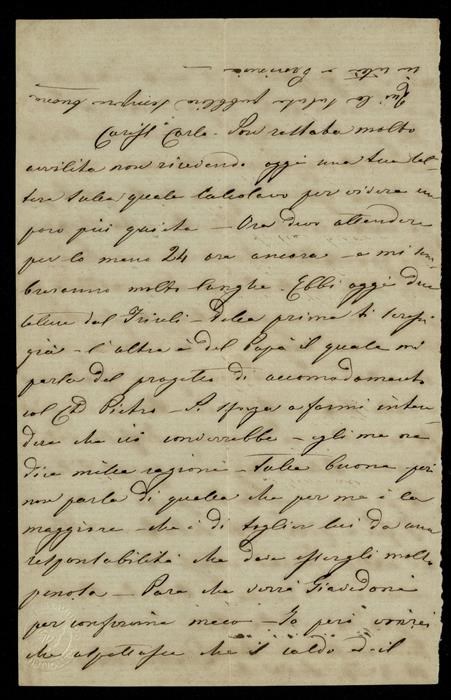 Qui la salute pubblica sempre buona
in città e Provincia —
Cariss Carlo. Son restata molto
avvilita non ricevendo oggi una tua let-
tera sulla quale calcolavo per vivere un
poco più quieta — Ora devo attendere
per lo meno 24 ore ancora — e mi sem
breranno molto lunghe. Ebbi oggi due
lettere dal Friuli — Della prima ti scrissi
già — l'altra è del Papà il quale mi
parla del progetto di accomodamento
col Pietro — Si sforza a farmi inten-
dere che ciò converrebbe — egli me ora
dice mille ragioni — tutte buone però
non parla di quella che per me è la
maggiore — che è di toglier lui da una
responsabilità che deve essergli molto
penosa — Pare che verrà
per conferire meco — Io però vorrei
che aspettasse che il caldo ed il